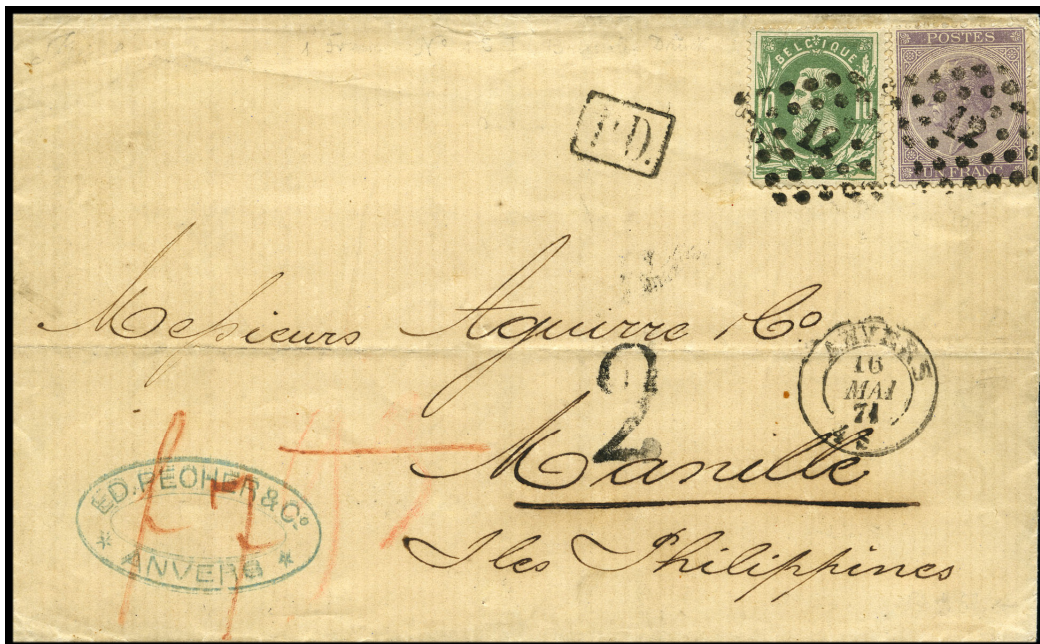 BELGIQUE
POSTES
UN FRANC
12
12
P.D.
Messieurs Aguirre & Co
2
ANVERS
16
MAI
71
Manille
Iles Philippines
ED. PECHER & Co
* ANVERS *